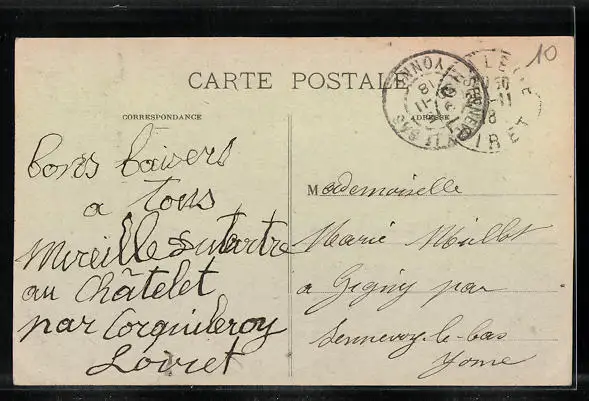 10
CARTE POSTALE
CORRESPONDANCE
ADRESSE
bons baisers
a tous
Mireille Dutartre
au Châtelet
par Corquilleroy
Loiret
Mademoiselle
Marie Millot
a Gigny par
Sennevoy-le-bas
Yonne